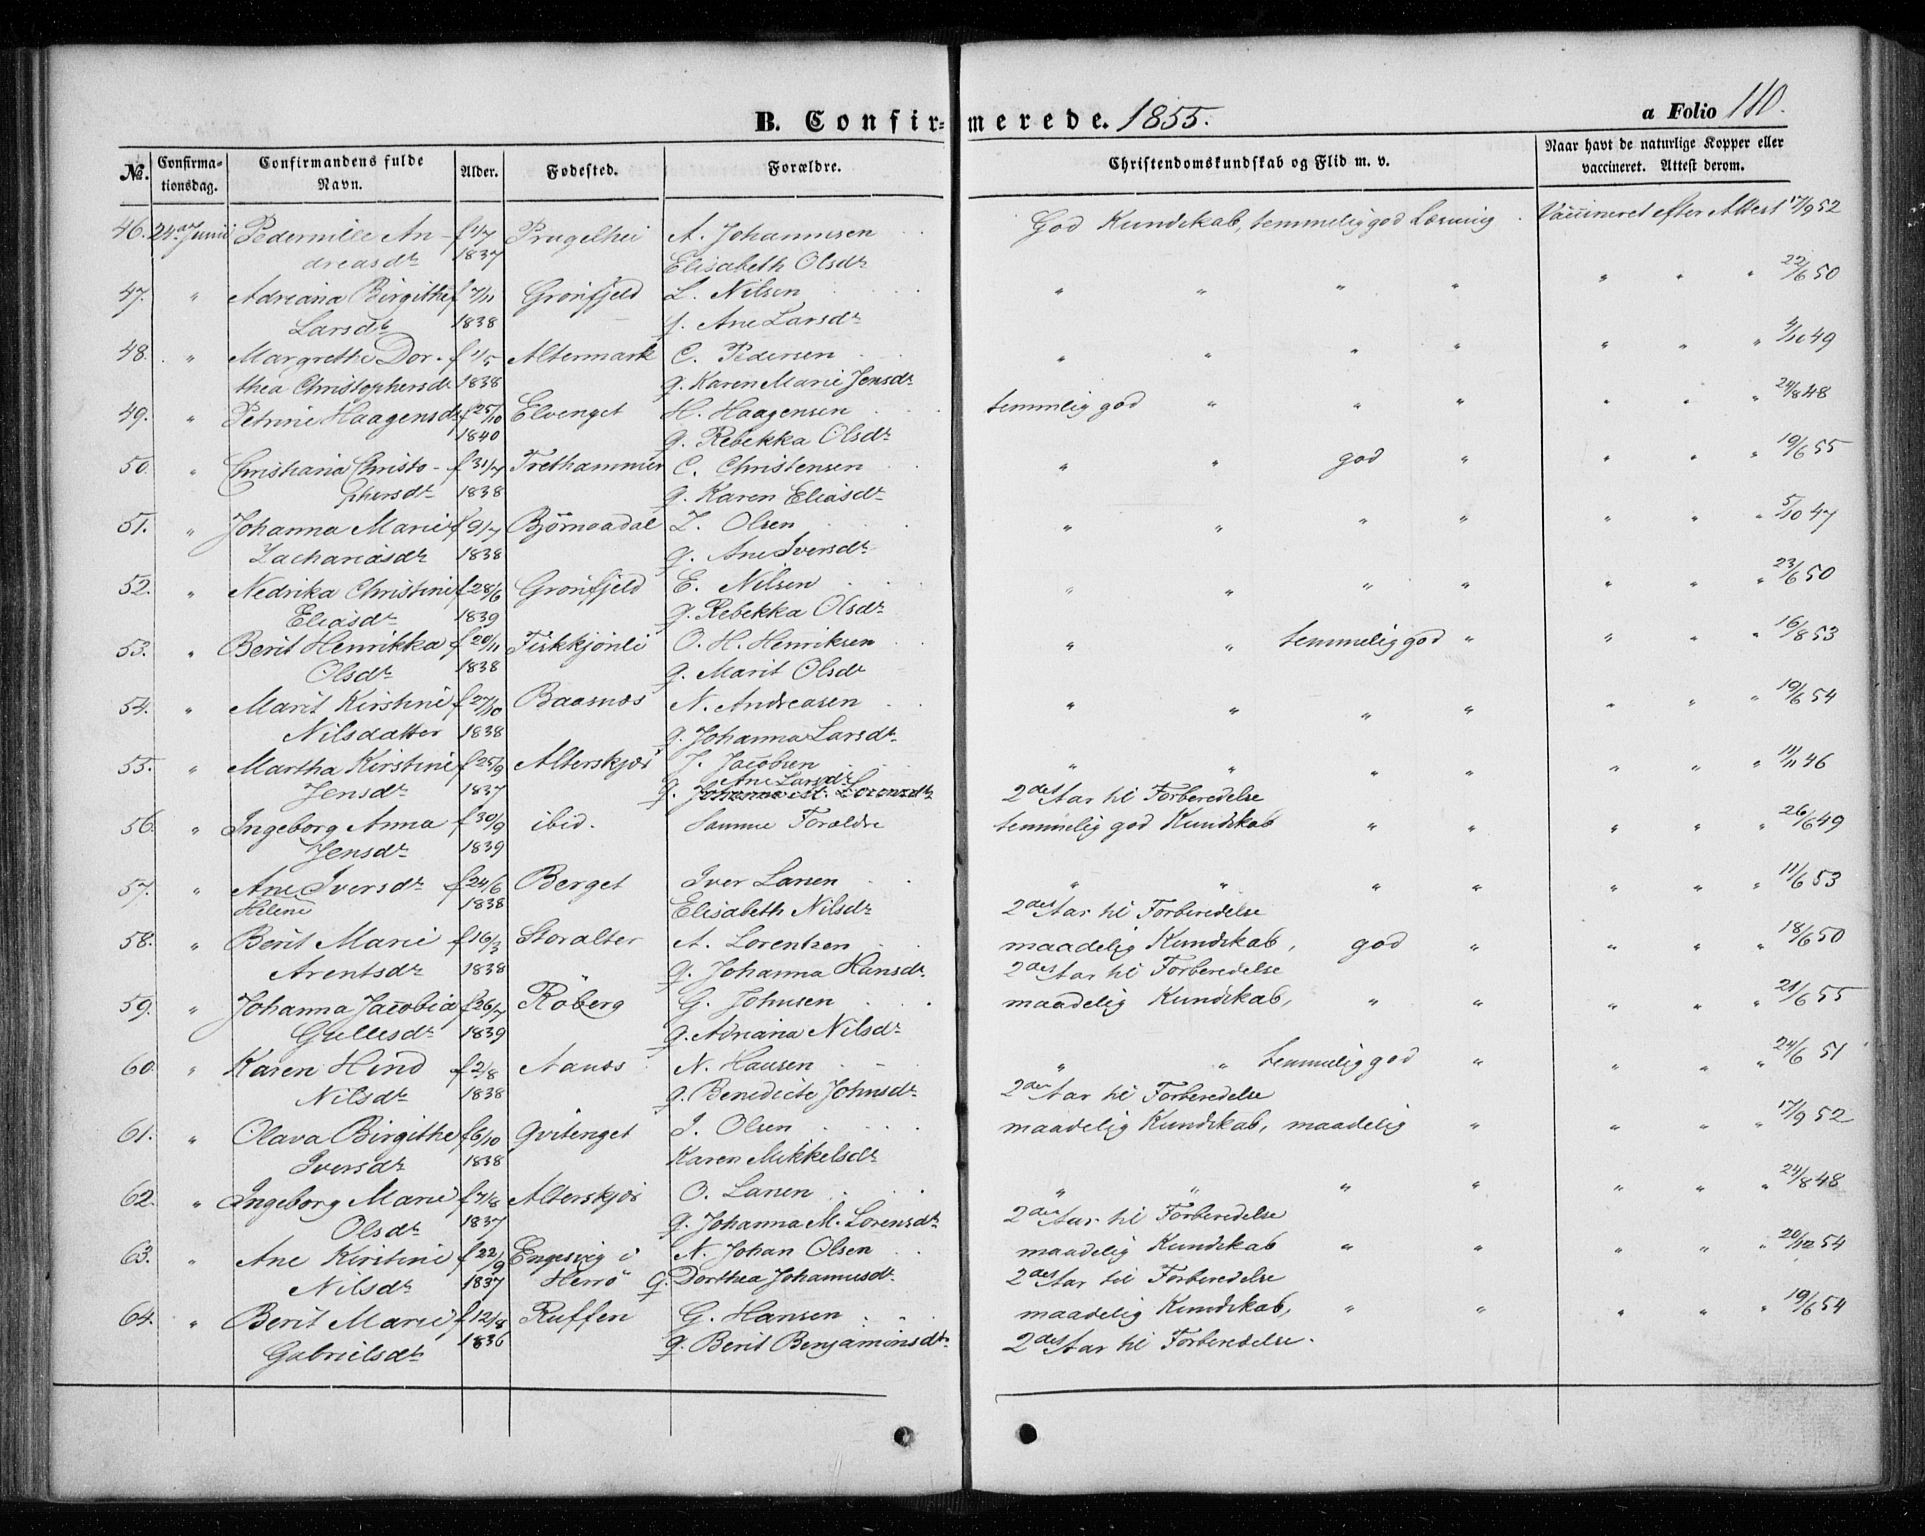 B. Confirmerede. 1855. a Folio 110.
№. Confirmationsdag. Confirmandens fulde Navn. Alder. Fødested. Forældre. Christendomskundskab og Flid m. v. Naar havt de naturlige Kopper eller vaccineret. Attest derom.
46. 24de Junii Pedernille An- f 1/7 Prugelhei A. Johannsen God Kundskab, temmelig god Læsning Vaccineret efter Attest 17/9 52
dreasdr 1837 Elisabeth Olsdr
47. " Adriana Birgithe f 7/11 Grønfjeld L. Nilsen " " " " " " " 22/6 50
Larsdr 1838 g. Ane Larsdr
48. " Margrethe Dor- f 1/5 Altermark C. Pedersen " " " " " " " 4/10 49
thea Christophersdr 1838 g. Karen Marie Jensdr
49. " Petrine Haagensdr f 25/10 Elvenget H. Haagensen temmelig god " " " " " " 24/8 48
1840 g. Rebekka Olsdr
50. " Christiana Christo- f 31/7 Trethammer C. Christensen " " god " " " " 19/6 55
phersdr 1838 g. Karen Eliasdr
51. " Johanna Marie f 9/7 Bjørnaadal Z. Olsen " " " " " " " 5/10 47
Zachariasdr 1838 g. Ane Iversdr
52. " Nedrika Christine f 28/6 Grønfjeld E. Nilsen " " " " " " " 23/6 50
Eliasdr 1839 g. Rebekka Olsdr
53. " Berit Henrikka f 20/11 Fiskkjønli O. H. Henriksen " " temmelig god " " " " 16/8 53
Olsdr 1838 g. Marit Olsdr
54. " Marit Kirstine f 27/10 Baasnæs N. Andreasen " " " " " " " 19/6 54
Nilsdatter 1838 g. Johanna Larsdr
55. " Martha Kirstine f 25/9 Alterskjær J. Jacobsen " " " " " " " 11/11 46
Ane Larsdr
Jensdr 1837 g. Johanna M. Lorenzdr 2det Aar til Forberedelse
56. " Ingeborg Anna f 30/9 ibid. Samme Forældre temmelig god Kundskab " " " " " 26/6 49
Jensdr 1839
57. " Ane Iversdr f 24/6 Berget Iver Larsen " " " " " " " 11/6 53
Helene 1838 Elisabeth Nilsdr 2det Aar til Forberedelse
58. " Berit Marie f 16/3 Storalter A. Lorentzen maadelig Kundskab, god " " " " 18/6 50
Arentsdr 1838 g. Johanna Hansdr 2det Aar til Forberedelse
59. " Johanna Jacobia f 26/7 Røberg G. Johnsen maadelig Kundskab, " " " " " 21/6 55
Gullesdr 1839 g. Adriana Nilsdr
60. " Karen Hind f 2/8 Aanæs N. Hansen " " temmelig god " " " " 24/6 51
Nilsdr 1838 g. Benedicte Johnsdr 2det Aar til Forberedelse
61. " Olava Birgithe f 6/10 Qvitenget I. Olsen maadelig Kundskab, maadelig " " " " 17/9 52
Iversdr 1838 Karen Mikkelsdr
62. " Ingeborg Marie f 7/8 Alterskjær O. Larsen " " " " " " " 24/8 48
Olsdr 1837 g. Johanna M. Lorensdr 2det Aar til Forberedelse
63. " Ane Kirstine f 22/9 Engesvig i N. Johan Olsen maadelig Kundskab " " " " " 20/12 54
Nilsdr 1837 Herrø g. Dorthea Johannesdr 2det Aar til Forberedelse
64. " Berit Marie f 12/8 Ruffen G. Hansen maadelig Kundskab, " " " " " 19/6 54
Gabrielsdr 1836 g. Berit Benjaminsdr 2det Aar til Forberedelse.